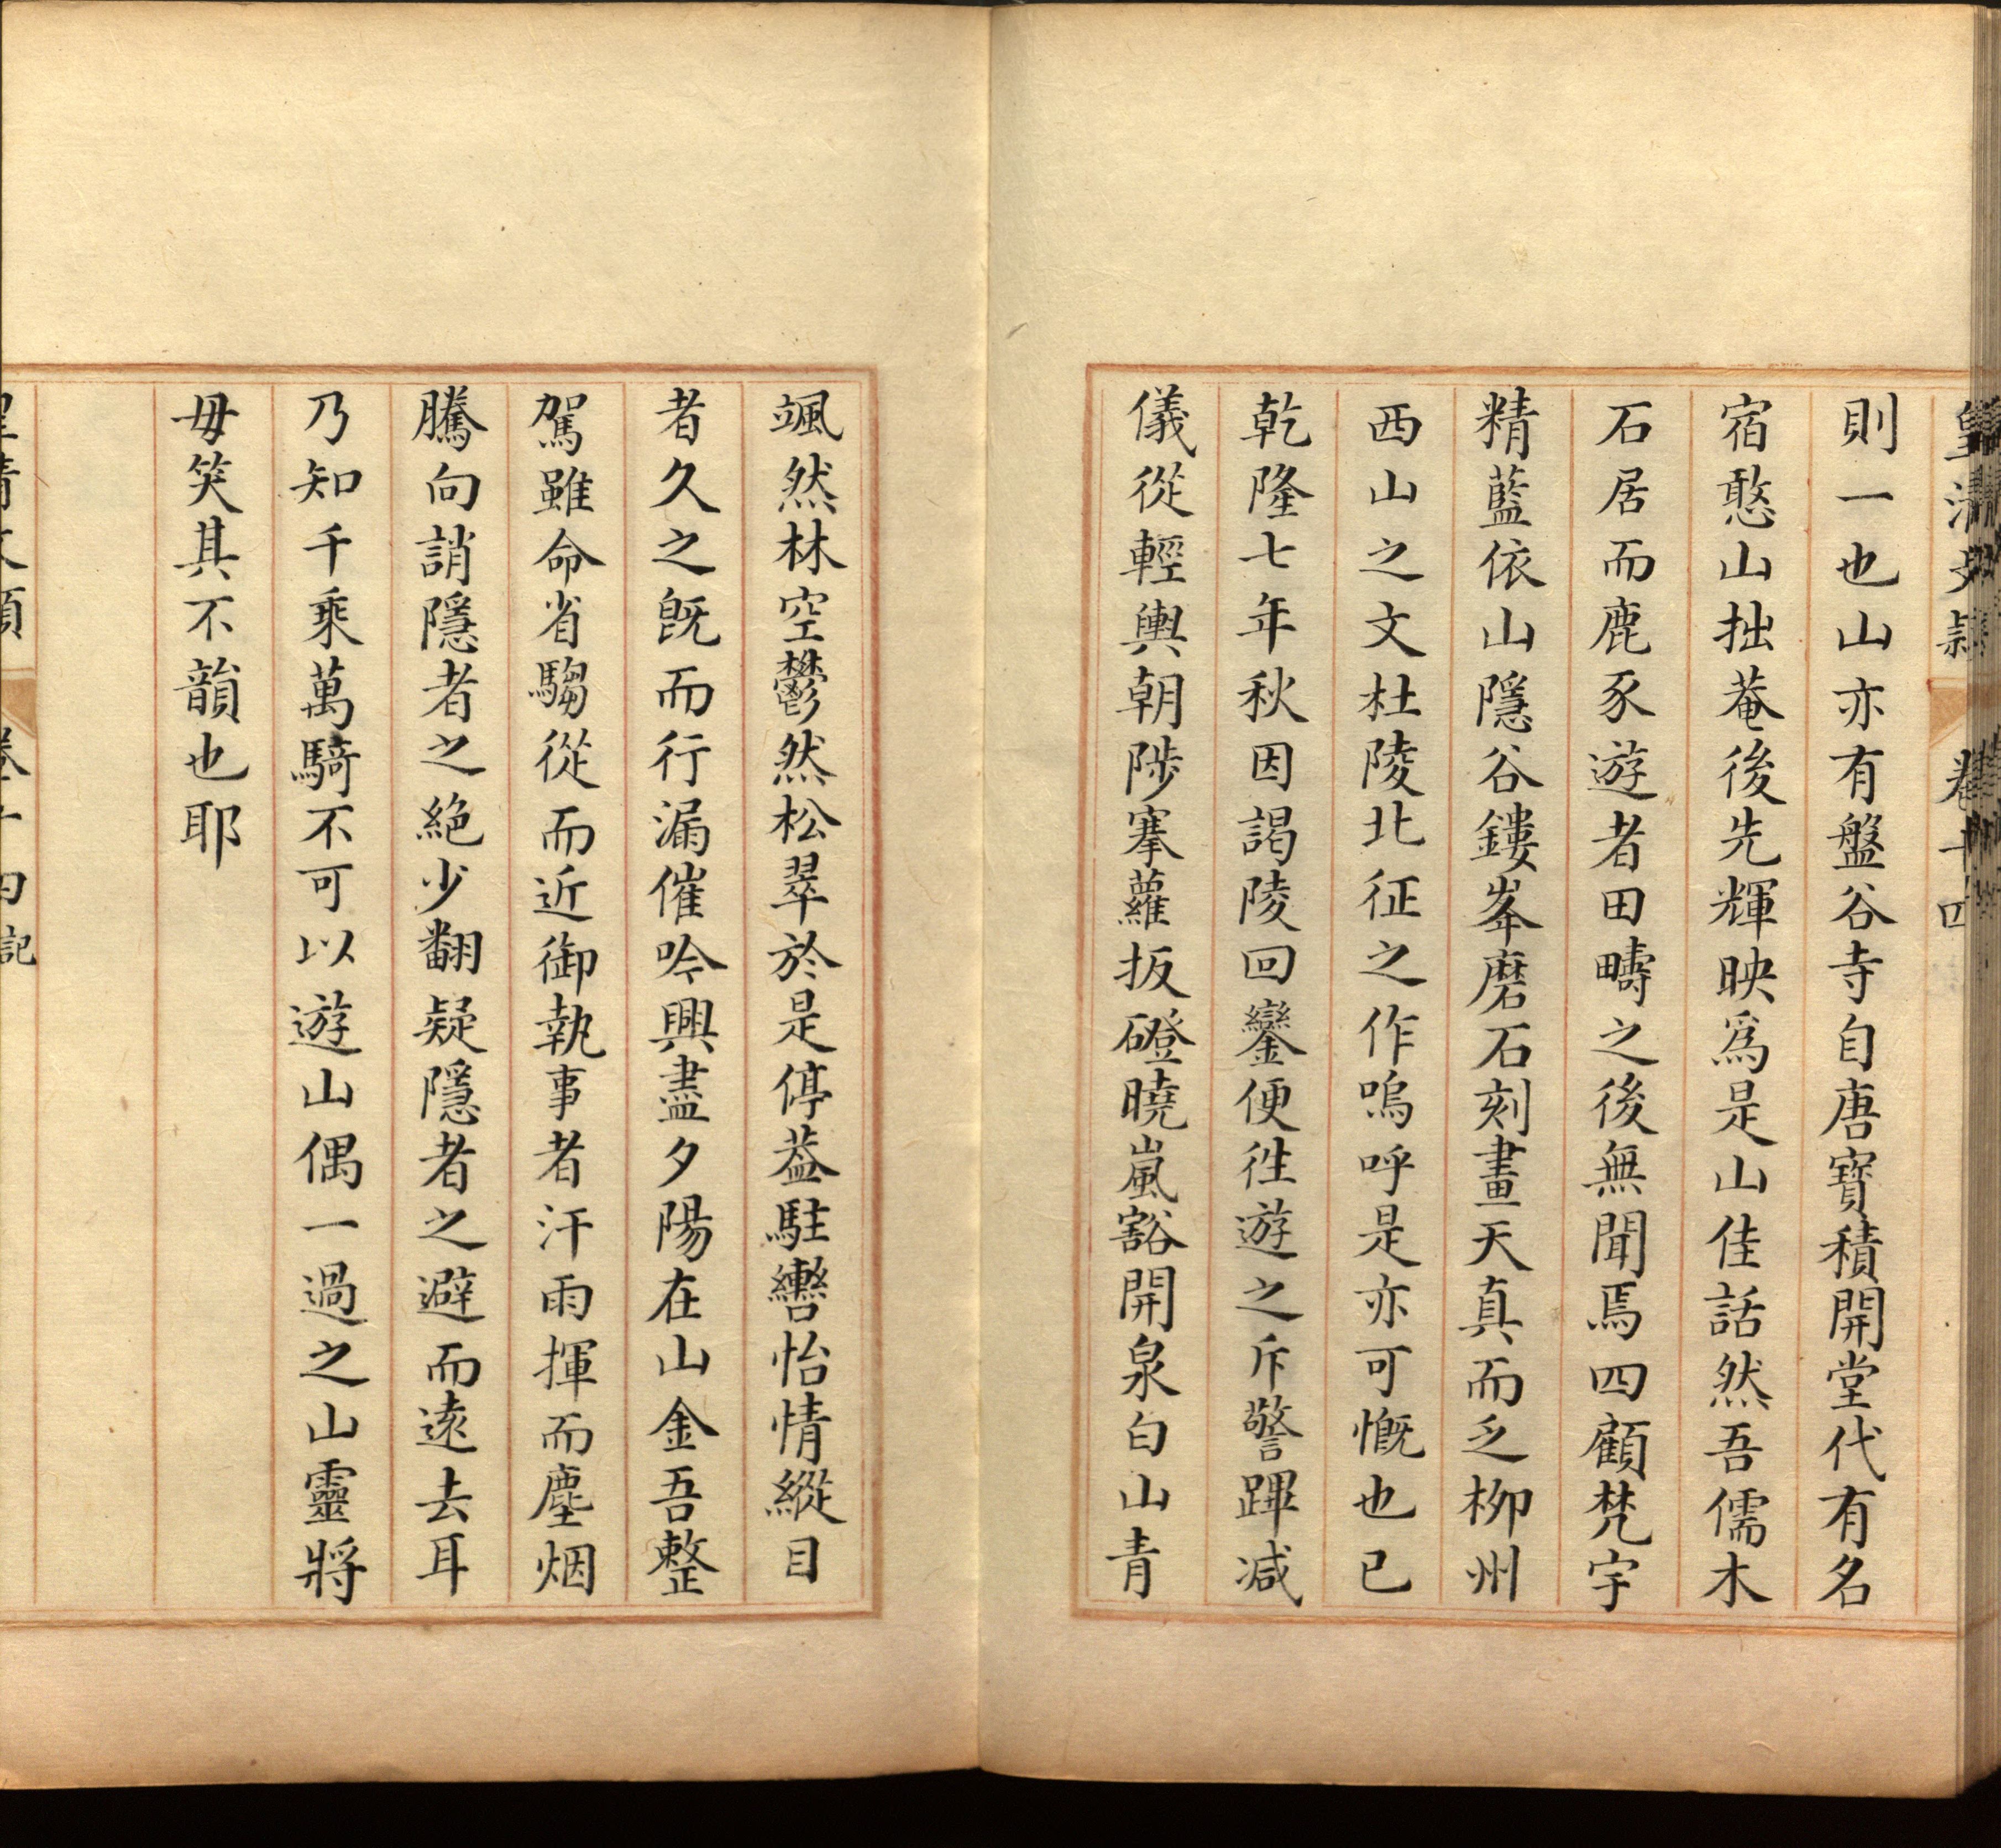 皇清文穎 卷十四
則一也山亦有盤谷寺自唐寶積開堂代有名
宿憨山拙菴後先輝映爲是山佳話然吾儒木
石居而鹿豕遊者田疇之後無聞焉四顧梵宇
精藍依山隱谷鏤峯磨石刻畫天真而乏柳州
西山之文杜陵北征之作嗚呼是亦可慨也已
乾隆七年秋因謁陵回鑾便徃遊之斥警蹕减
儀從輕輿朝陟搴蘿扳磴曉嵐豁開泉白山青
颯然林空鬱然松翠於是停葢駐轡怡情縱目
者久之旣而行漏催吟興盡夕陽在山金吾整
駕雖命省騶從而近御執事者汗雨揮而塵烟
騰向誚隱者之絶少翻疑隱者之避而遠去耳
乃知千乘萬騎不可以遊山偶一過之山靈將
毋笑其不韻也耶
皇清文穎 卷十四記